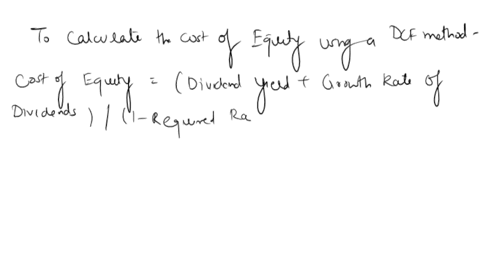 To Calculate the cost of Equity using a DCF method -
Cost of Equity = (Dividend yield + Growth Rate of
Dividends ) / (1 - Required Ra